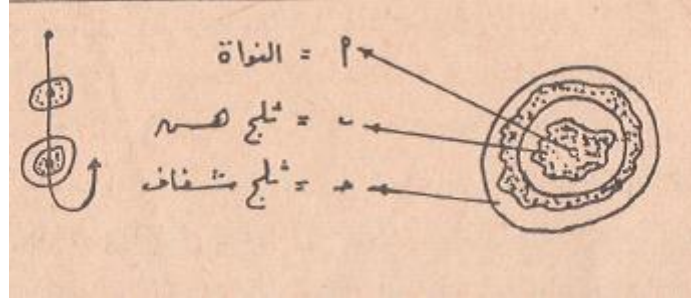 أ = النواة
ب = ثلج هش
ج = ثلج شفاف